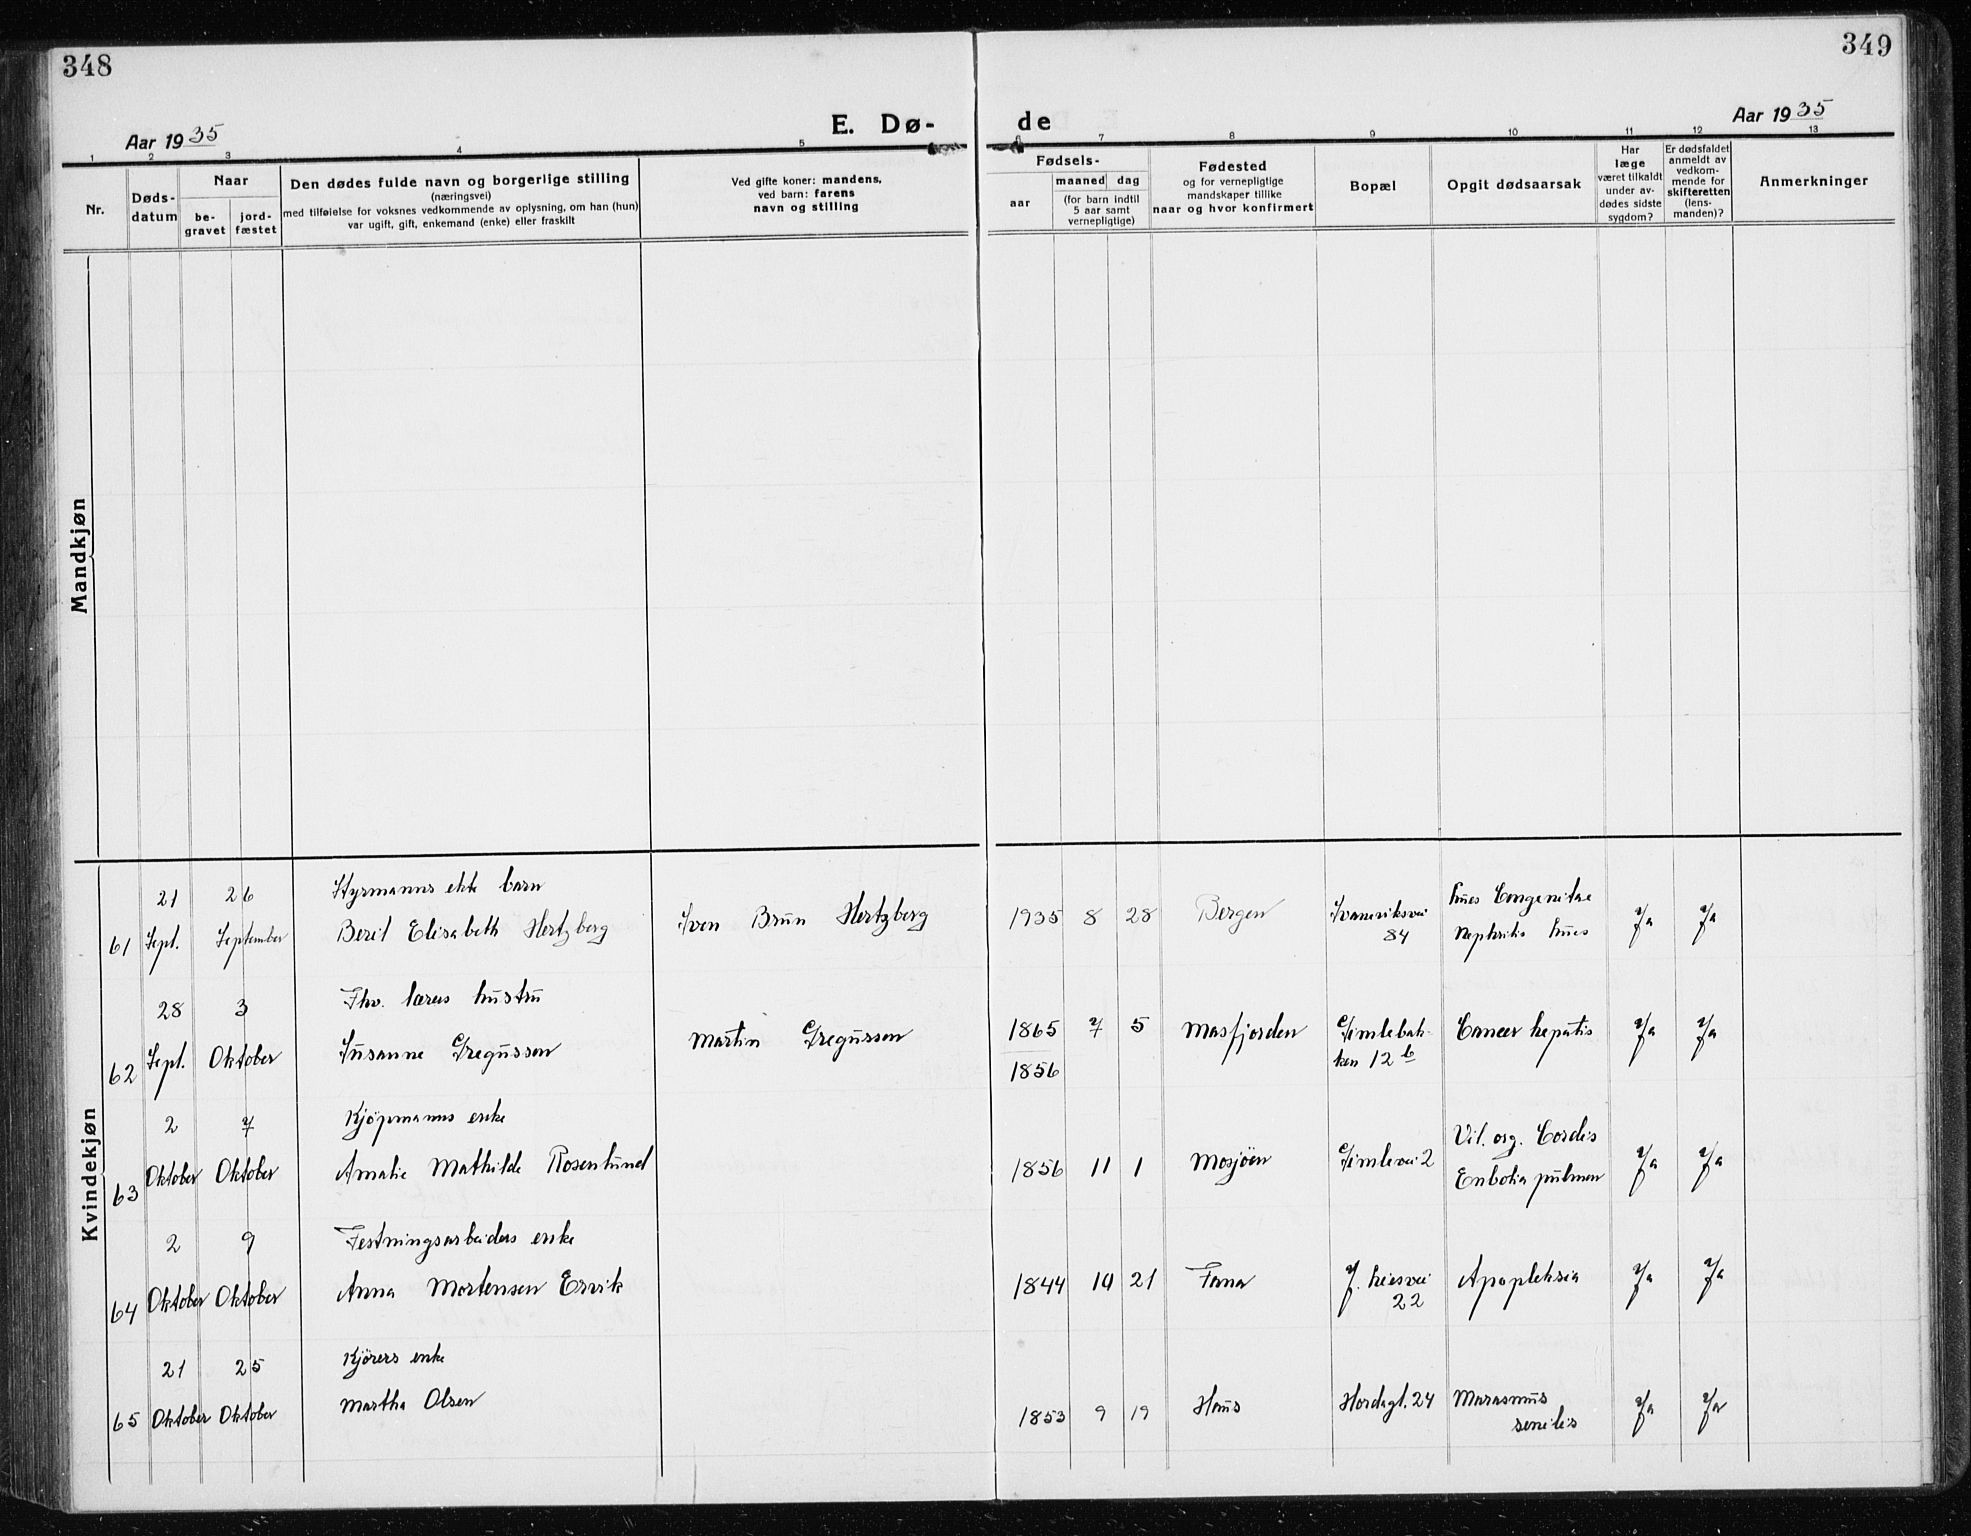 348
349
Aar 1935
E. Dø-
de
Aar 1935
1 2 3 4 5 6 7 8 9 10 11 12 13
Nr.
Døds-
datum
Naar
be-
gravet
jord-
fæstet
Den dødes fulde navn og borgerlige stilling
(næringsvei)
med tilføielse for voksnes vedkommende av oplysning, om han (hun)
var ugift, gift, enkemand (enke) eller fraskilt
Ved gifte koner: mandens,
ved barn: farens
navn og stilling
Fødsels-
aar
maaned dag
(for barn indtil
5 aar samt
vernepligtige)
Fødested
og for vernepligtige
mandskaper tillike
naar og hvor konfirmert
Bopæl
Opgit dødsaarsak
Har
læge
været tilkaldt
under av-
dødes sidste
sygdom?
Er dødsfaldet
anmeldt av
vedkom-
mende for
skifteretten
(lens-
manden)?
Anmerkninger
Mandkjøn
Kvindekjøn
21 26 Styrmanns ekte barn
61 Sept. September Berit Elisabeth Hertzberg Sven Brun Hertzberg 1935 8 28 Bergen
84
Lues Congenitae
Nephritis Lues
Ja Ja
28 3 Fhv. lærers hustru
62 Sept. Oktober Susanne Gregussen Martin Gregussen 1865 7 5 Masfjorden Gimlebak-
ken 12 b
Cancer hepatis Ja Ja
1856
2 7 Kjøpmanns enke
63 Oktober Oktober Amalie Mathilde Rosenlund 1856 11 1 Mosjöen Gimlevei 2
Vit. org. Cordis
Enbolia pulmon
Ja Ja
2 9 Festningsarbeiders enke
64 Oktober Oktober Anna Mortensen Ervik 1844 10 21 Fana J. Liesvei
22
Apopleksia Ja Ja
21 25 Kjörers enke
65 Oktober Oktober Martha Olsen 1853 9 19 Haus Hordagt. 24 Marasmus
senilis
Ja Ja